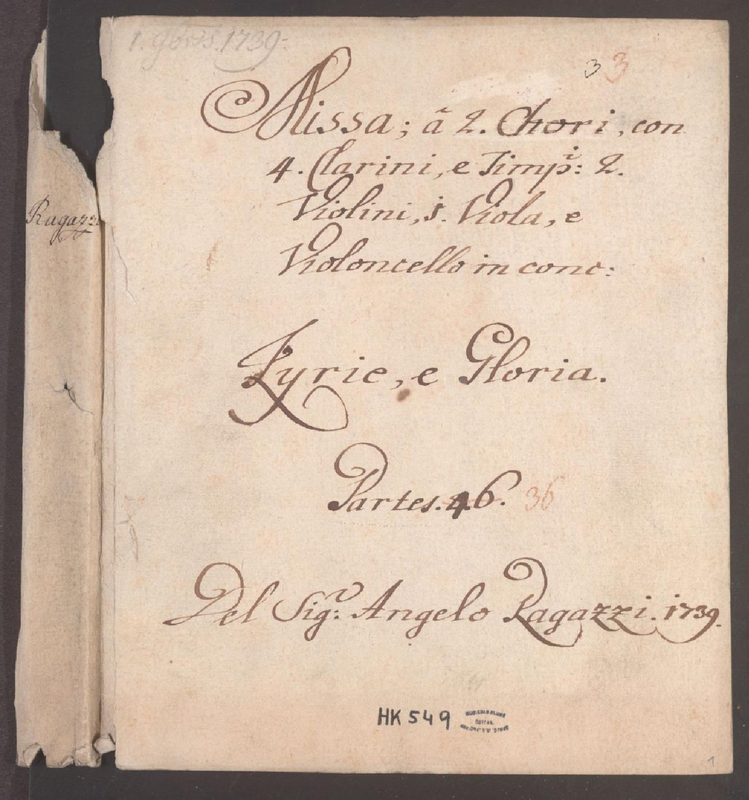 1739
3 3
Missa; â 2. Chori, con
4. Clarini, e Timp:i 2.
Violini, 1. Viola, e
Violoncello in conc:
Kyrie, e Gloria.
Partes. 46. 36
Del Sigr: Angelo Ragazzi. 1739.
Ragazzi
HK 549
1